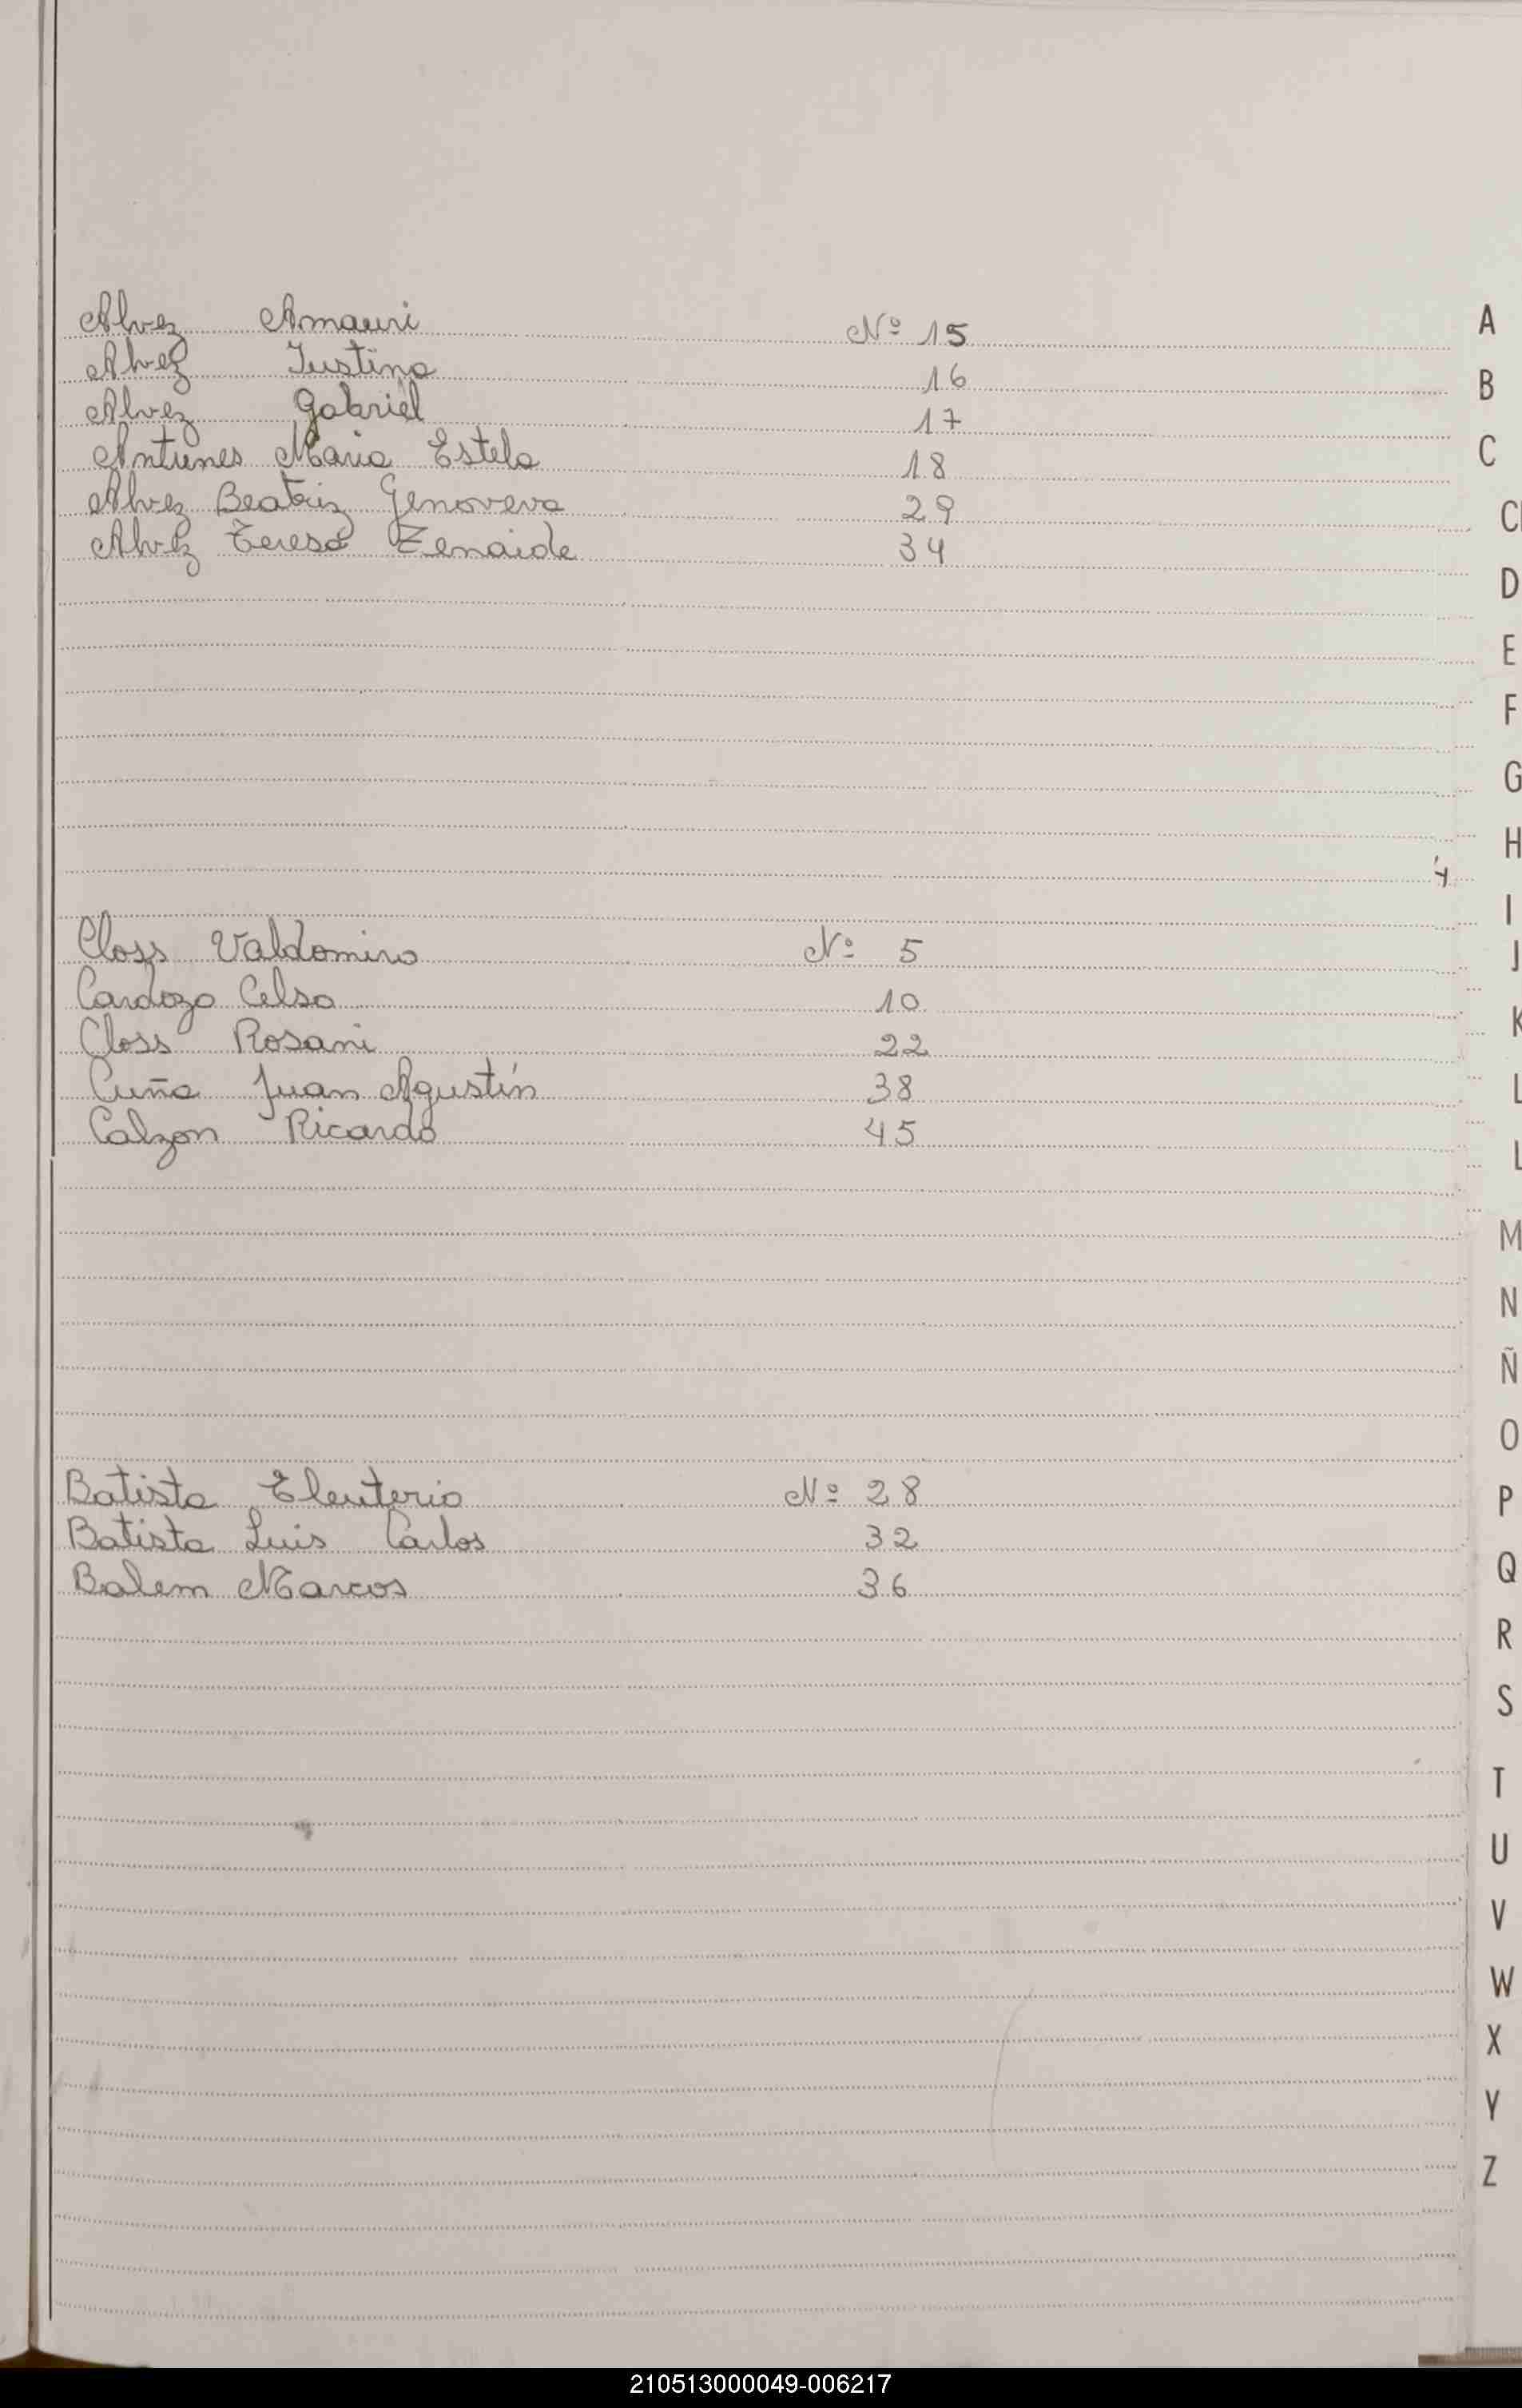 Alvez Amauri Nº 15
Alvez Justino 16
Alvez Gabriel 17
Antunes Maria Estela 18
Alvez Beatriz Genoveva 29
Alvez Teresa Zenaide 34
Closs Valdomiro Nº 5
Cardozo Celso 10
Closs Rosani 22
Cuña Juan Agustín 38
Calzon Ricardo 45
Batista Eleuterio Nº 28
Batista Luis Carlos 32
Balem Marcos 36
A
B
C
D
E
F
G
H
I
J
K
L
L
M
N
Ñ
O
P
Q
R
S
T
U
V
W
X
Y
Z
210513000049-006217